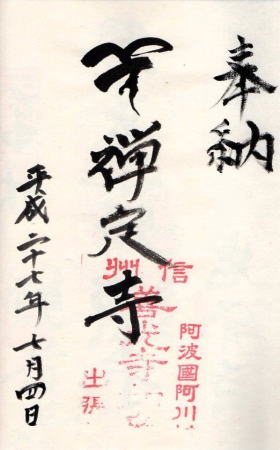 奉納
禅定寺
平成二十七年七月四日
信州
善光寺
出張
阿波國阿川